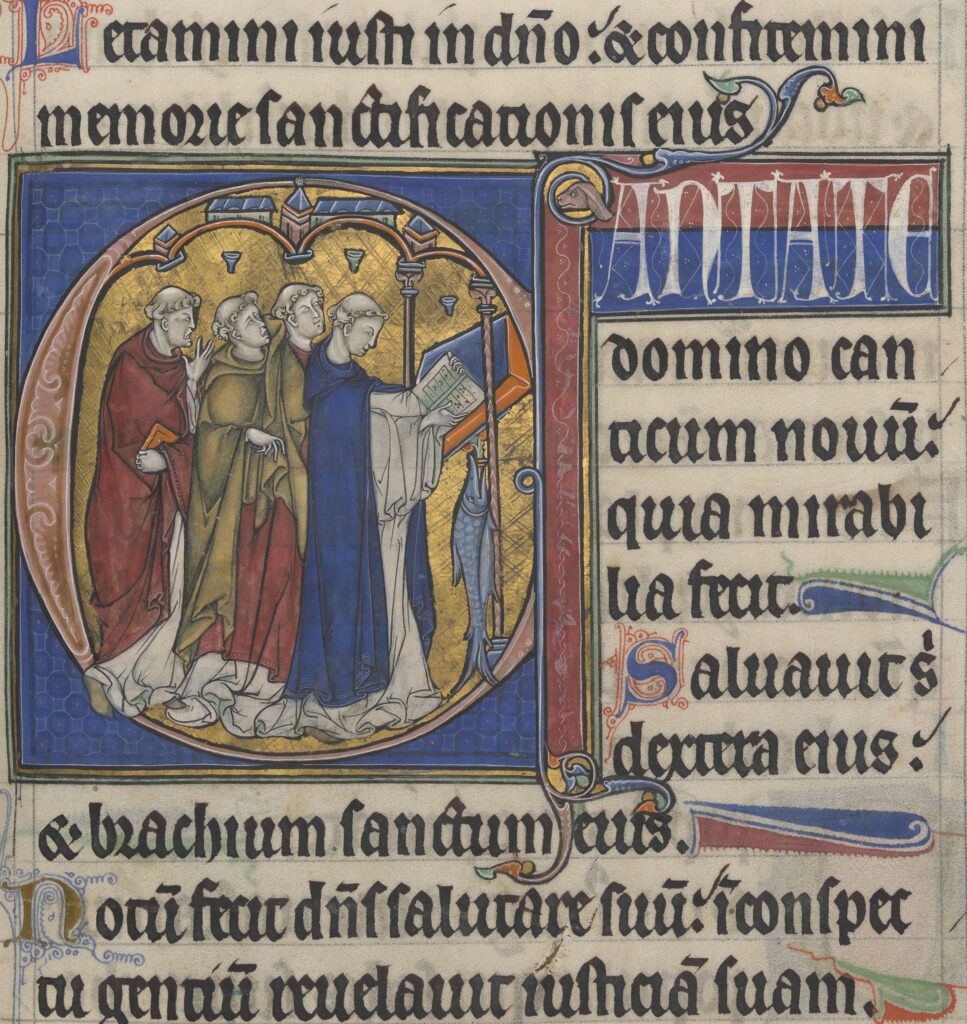 Letamini iusti in dño: & confitemini
memorie sanctificationis eius
CANTATE
domino can
ticum nouū:
quia mirabi
lia fecit.
Saluauit s̄
dextera eius:
& brachium sanctum eius.
Notū fecit dñs salutare suū: ī conspec
tu gentiū reuelauit iusticiā suam.